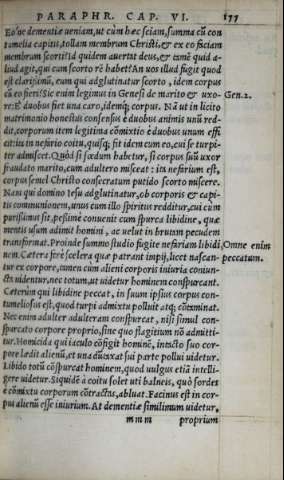 PARAPHR. CAP. VI. 177
Eo'ne dementiæ ueniam, ut cùm hæc sciam, summa cũ con
tumelia capitis, tollam membrum Christi, & ex eo faciam
membrum scorti? id quidem auertat deus, & omẽ quid a-
liud agit, qui cum scorto rẽ habet? An uos illud fugit quod
est clarissimũ, eum qui adglutinatur scorto, idem corpus
cũ eo fieri? Sic enim legimus in Genesi de marito & uxo- Gen. 2.
re: È duobus fiet una caro, idemq; corpus. Nã ut in licito
matrimonio honestus consensus è duobus animis unũ red-
dit, corporum item legitina cõmixtio è duobus unum effi
cit: ita in nefario coitu, quisq; fit idem cum eo, cui se turpi-
ter admiscet. Quòd si fœdum habetur, si corpus suũ uxor
fraudato marito, cum adultero misceat: ita nefarium est,
corpus semel Christo consecratum putido scorto miscere.
Nam qui domino Iesu adglutinatur, ob corporis & capi-
tis communionem, unus cum illo spiritus redditur, cui cùm
purissimus sit, pessimè conuenit cum spurca libidine, quæ
mentis usum adimit homini, ac uelut in brutum pecudem
transformat. Proinde summo studio fugite nefariam libidi, Omne enim
nem. Cætera ferè scelera quæ patrant impij, licet nascan- peccatum.
tur ex corpore, tamen cum alieni corporis iniuria coniun-
cta uidentur, nec totum, ut uidetur hominem conspurcant.
Cæterùm qui libidine peccat, in suum ipsius corpus con-
tumeliosus est, quod turpi admixtu polluit atq; cõtaminat.
Nec enim adulter adulteram conspurcat, nisi simul con-
spurcato corpore proprio, sine quo flagitium nõ admitti-
tur. Homicida qui iaculo cõfigit hominẽ, intacto suo cor-
pore lædit alienũ, et una duntaxat sui parte pollui uidetur.
Libido totũ cõspurcat hominem, quod uulgus etiã intelli-
gere uidetur. Siquidẽ à coitu solet uti balneis, quò sordes
è cõmixtu corporum cõtractas, abluat. Facinus est in cor-
pus alienũ esse iniurium. At dementiæ simillimum uidetur,
mmm proprium